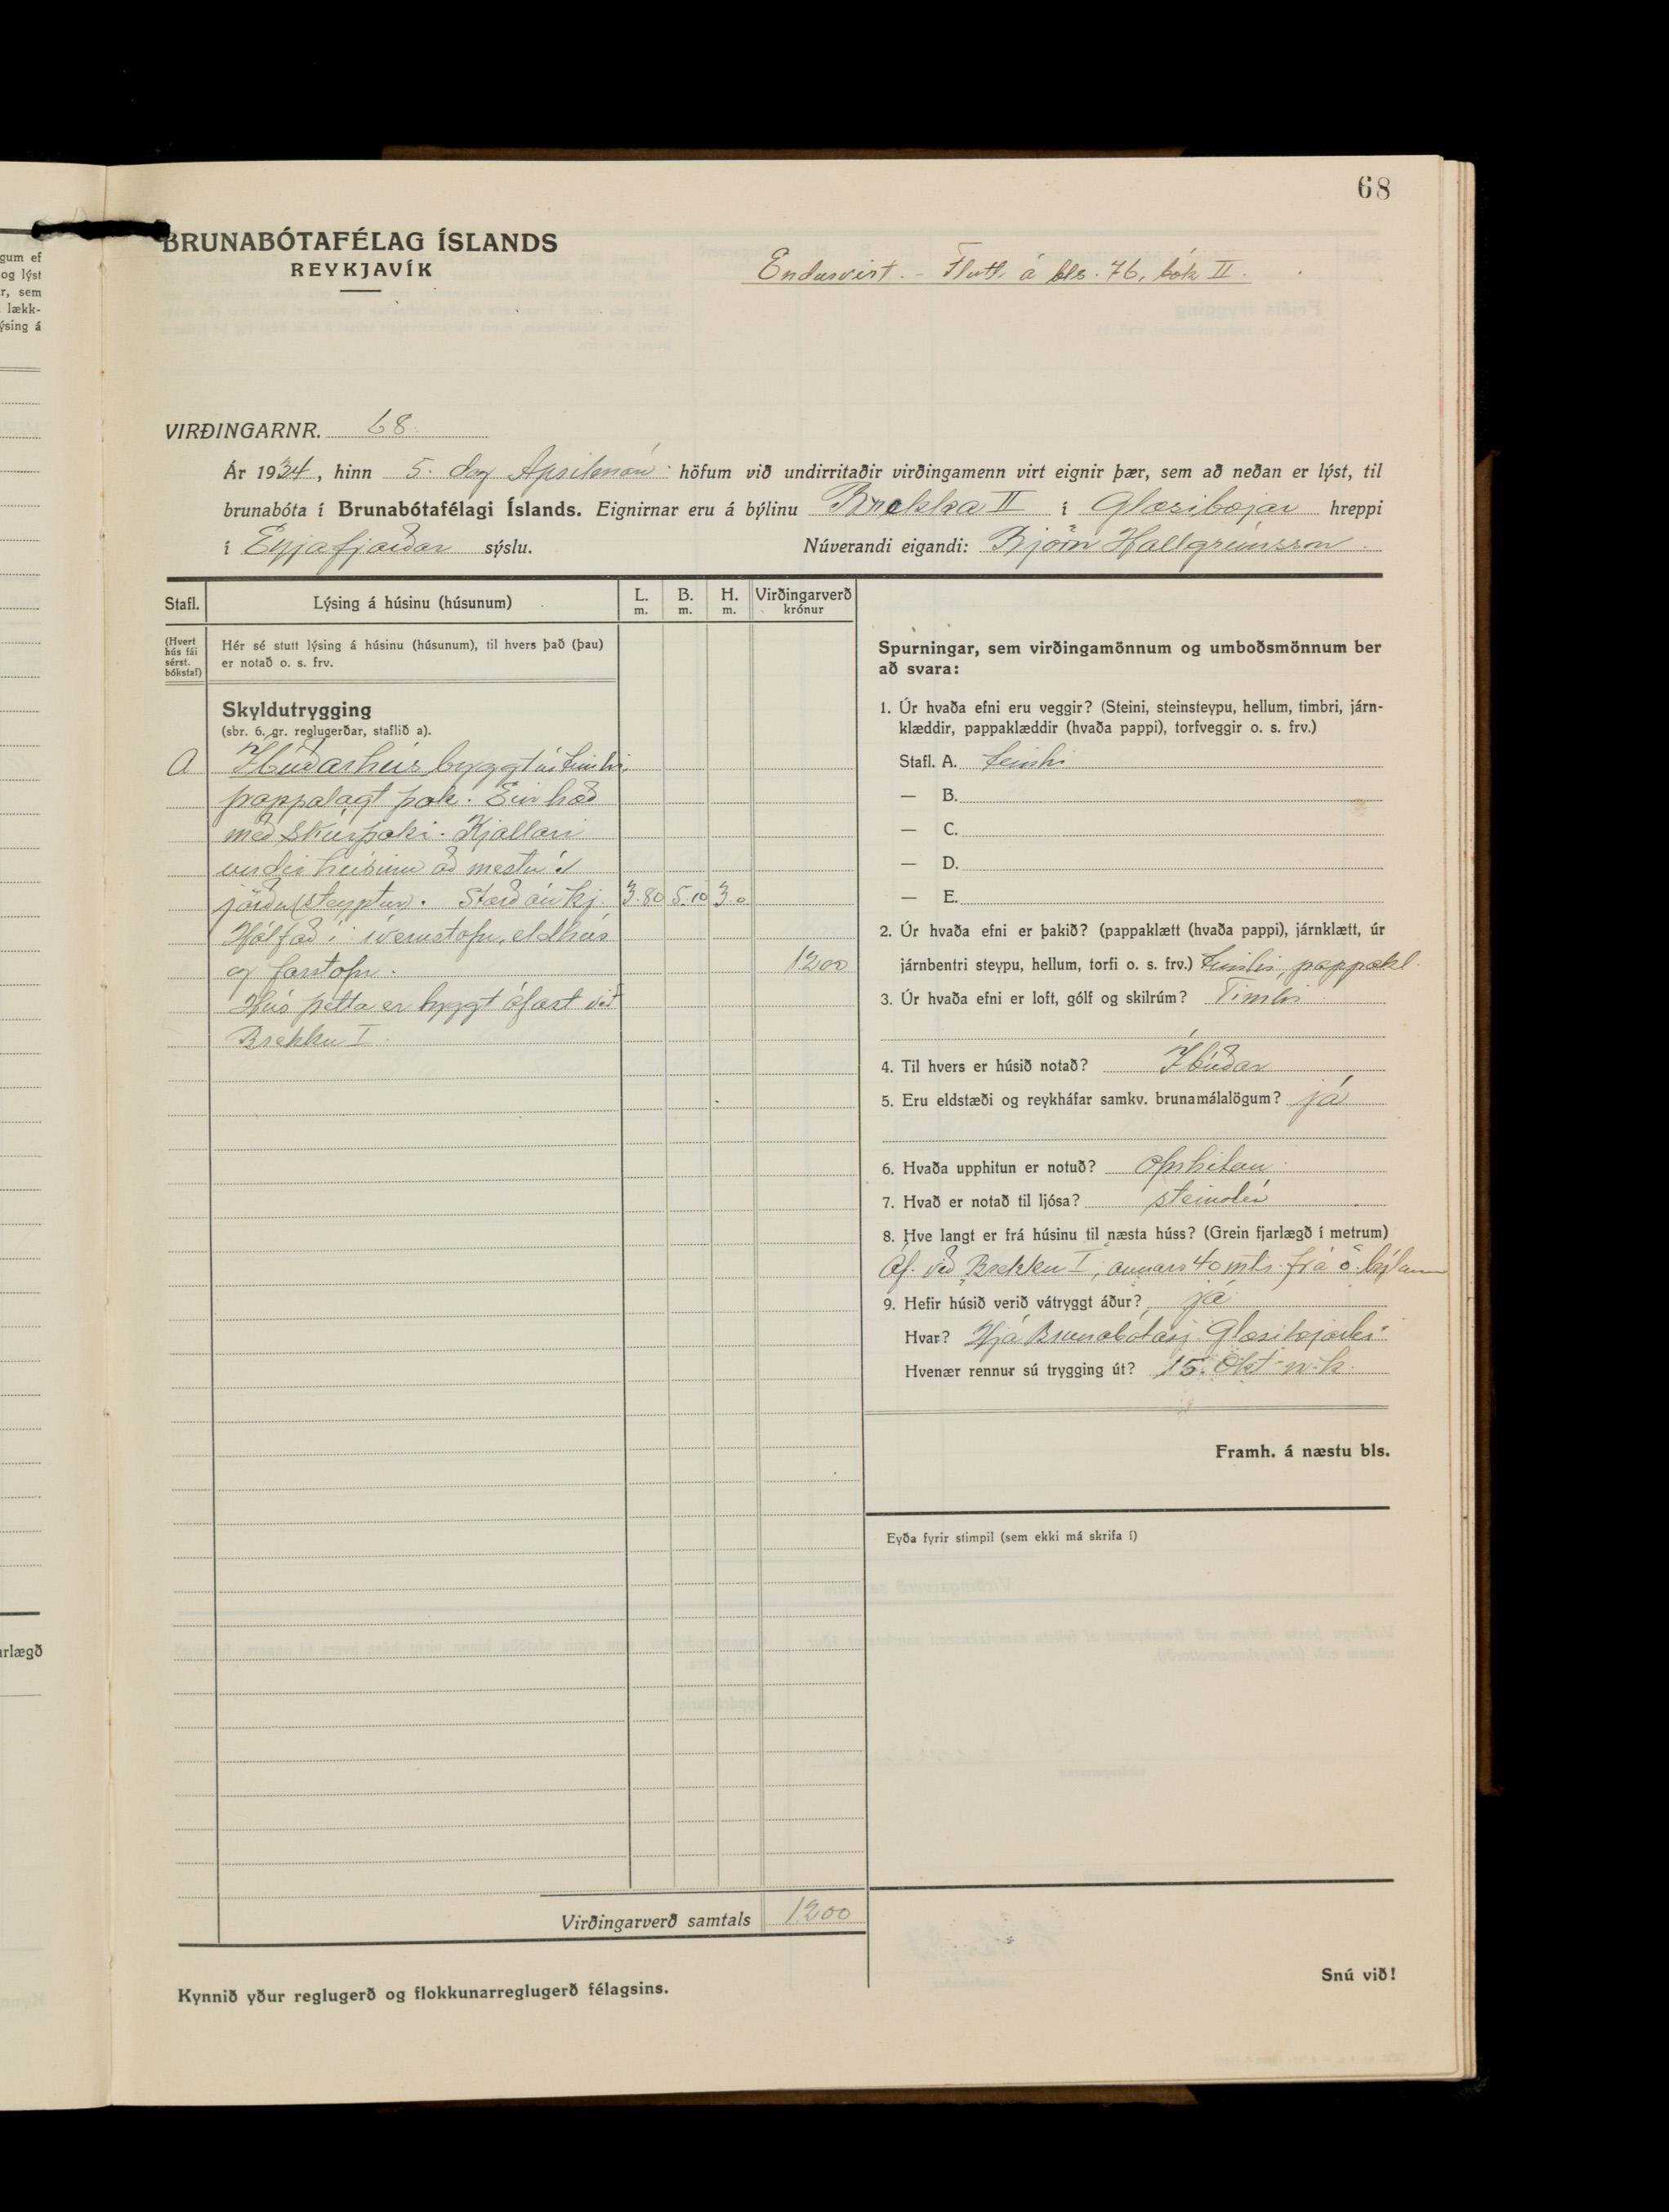 68
BRUNABÓTAFÉLAG ÍSLANDS
REYKJAVÍK
Endurvirt. - Flutt á bls. 76, bók II.
VIRÐINGARNR. 68.
Ár 1934, hinn 5. dag Aprílmán: höfum við undirritaðir virðingamenn virt eignir þær, sem að neðan er lýst, til
brunabóta í Brunabótafélagi Íslands. Eignirnar eru á býlinu Brekka II í Glæsibæjar hreppi
í Eyjafjarðar sýslu. Núverandi eigandi: Björn Hallgrímsson
Stafl. Lýsing á húsinu (húsunum) L. m. B. m. H. m. Virðingarverð krónur
(Hvert hús fái sérst. bókstaf)
Hér sé stutt lýsing á húsinu (húsunum), til hvers það (þau)
er notað o. s. frv.
Skyldutrygging
(sbr. 6. gr. reglugerðar, staflið a).
A Íbúðarhús byggt úr timbri,
pappalagt þak. Ein hæð
með skúrþaki. Kjallari
undir húsinu að mestu í
jörðu (steyptur. Stærð án kj. 3.80 5.10 3.0
Hólfað í: íverustofu, eldhús
og forstofu. 1200
Hús þetta er byggt áfast við
Brekku I.
Virðingarverð samtals 1200
Kynnið yður reglugerð og flokkunarreglugerð félagsins.
Spurningar, sem virðingamönnum og umboðsmönnum ber
að svara:
1. Úr hvaða efni eru veggir? (Steini, steinsteypu, hellum, timbri, járn-
klæddir, pappaklæddir (hvaða pappi), torfveggir o. s. frv.)
Stafl. A. timbri
— B.
— C.
— D.
— E.
2. Úr hvaða efni er þakið? (pappaklætt (hvaða pappi), járnklætt, úr
járnbentri steypu, hellum, torfi o. s. frv.) timbri, pappakl.
3. Úr hvaða efni er loft, gólf og skilrúm? Timbri
4. Til hvers er húsið notað? Íbúðar
5. Eru eldstæði og reykháfar samkv. brunamálalögum? já
6. Hvaða upphitun er notuð? Ofnhitun
7. Hvað er notað til ljósa? steinolía
8. Hve langt er frá húsinu til næsta húss? (Grein fjarlægð í metrum)
Áf. við Brekku I, annars 40 mtr. frá ö. býlum
9. Hefir húsið verið vátryggt áður? já
Hvar? Hjá Brunabótasj. Glæsibæjarhr.
Hvenær rennur sú trygging út? 15. Okt. n.k.
Framh. á næstu bls.
Eyða fyrir stimpil (sem ekki má skrifa í)
Snú við!
gum ef
og lýst
r, sem
lækk-
ýsing á
arlægð